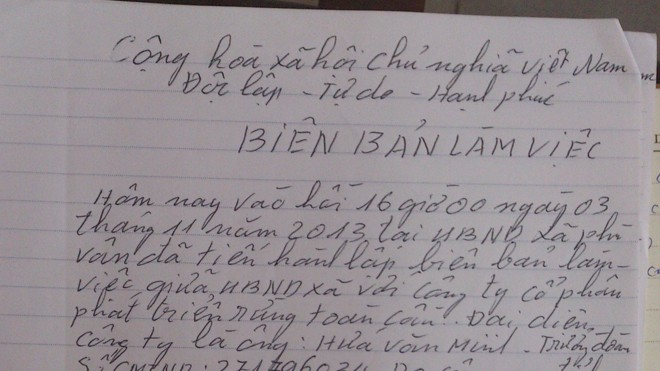 Cộng hoà xã hội chủ nghĩa việt Nam
Độc lập - Tự do - Hạnh phúc
BIÊN BẢN LÀM VIỆC
Hôm nay vào hồi 16 giờ 00 ngày 03
tháng 11 năm 2013 tại UBND xã phú
vân đã tiến hành lập biên bản làm
việc giữa UBND xã với công ty cổ phần
phát triển rừng toàn cầu. Đại diện
công ty là ông: Hứa văn Minh - Trưởng đoàn
Số CMTND: